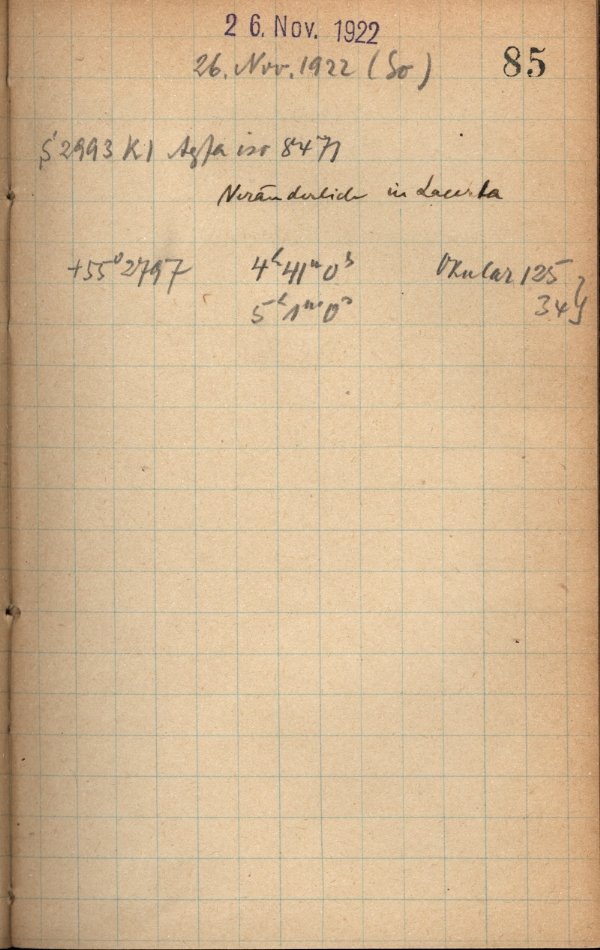 26. Nov. 1922
26. Nov. 1922 (So)
85
S 2993 KI Agfa iso 8471
Veränderlich in Lacerta
+55° 2797 4ʰ 41ᵐ 0ˢ Okular 125
5ʰ 1ᵐ 0ˢ 34 }